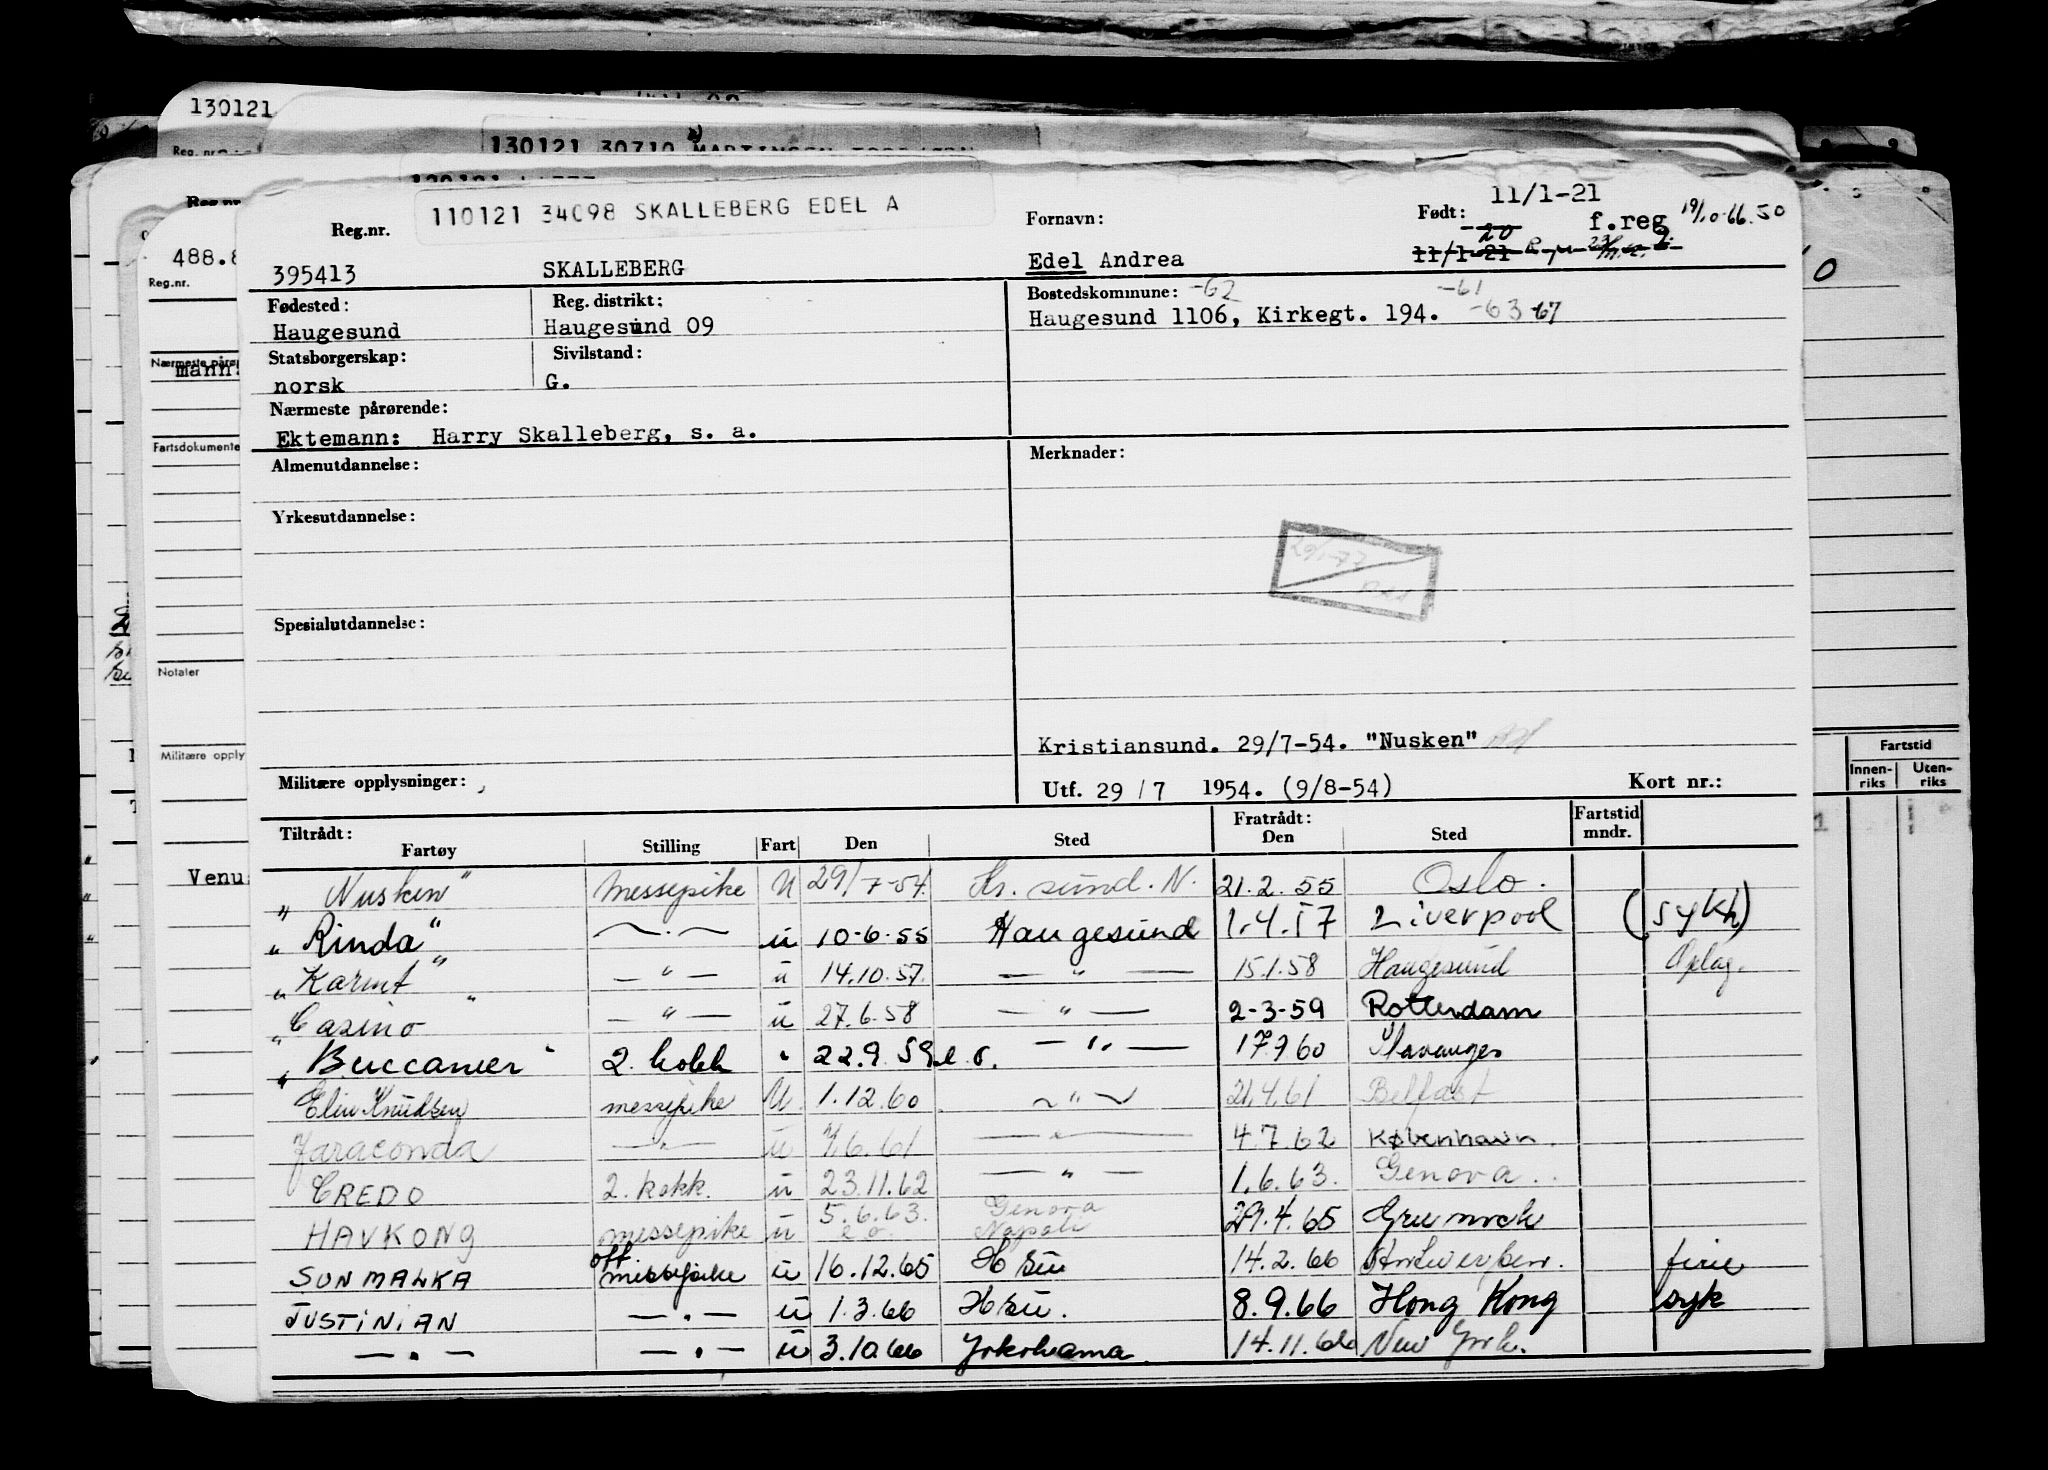 130121
Reg. nr.
130121 30710
488.8
Reg.nr.
mann.
Fartsdokumente
Notater
Militære opply
Venu
Fartstid
Innen-riks Uten-riks
110121 34098 SKALLEBERG EDEL A
Reg.nr. Fornavn: Født: 11/1-21
f.reg 19/10-66.50
395413 SKALLEBERG Edel Andrea 11/1-21 20
Fødested: Reg. distrikt: Bostedskommune: -62 -61
Haugesund Haugesund 09 Haugesund 1106, Kirkegt. 194. -63 -67
Statsborgerskap: Sivilstand:
norsk G.
Nærmeste pårørende:
Ektemann: Harry Skalleberg, s. a.
Almenutdannelse: Merknader:
Yrkesutdannelse:
29/1-77
Spesialutdannelse:
Kristiansund. 29/7-54. "Nusken"
Militære opplysninger: Utf. 29/7 1954. (9/8-54) Kort nr.:
Tiltrådt: Fratrådt: Fartstid mndr.
Fartøy Stilling Fart Den Sted Den Sted
"Nusken" messepike U 29/7-54. Kr. sund. N. 21.2.55 Oslo.
"Rinda" —.— u 10-6-55 Haugesund 1.4.57 Liverpool (sykh)
"Karmt" — " — u 14.10.57. — " — 15.1.58 Haugesund Oplag.
"Casino" — " — u 27.6.58 — " — 2-3-59 Rotterdam
"Buccaneer" 2. kokk " 22.9.59 e.o. — " — 17.9.60 Stavanger
Elin Knudsen messepike U. 1.12.60 — " — 21.4.61 Belfast
Jaraconda — " — u 7.6.61 — " — 4.7.62 København.
CREDO 2. kokk. u 23.11.62 — " — 1.6.63. Genova.
HAVKONG messepike u 5.6.63. e.o. Genova Napoli 29.4.65 Greenock
SUNMALKA off messepike u 16.12.65 H sun 14.2.66 Antwerpen. ferie
JUSTINIAN — " — u 1.3.66 H su. 8.9.66 Hong Kong syk
— " — — " — u 3.10.66 Yokohama 14.11.66 New York.